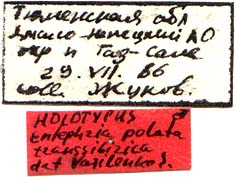 Тюменская обл
Ямало-ненецкий АО
окр п Таз-сале
29. VII. 86
coll Жуков.
HOLOTYPUS ♂
Entephria polata
transsibirica
det Vasilenko S.